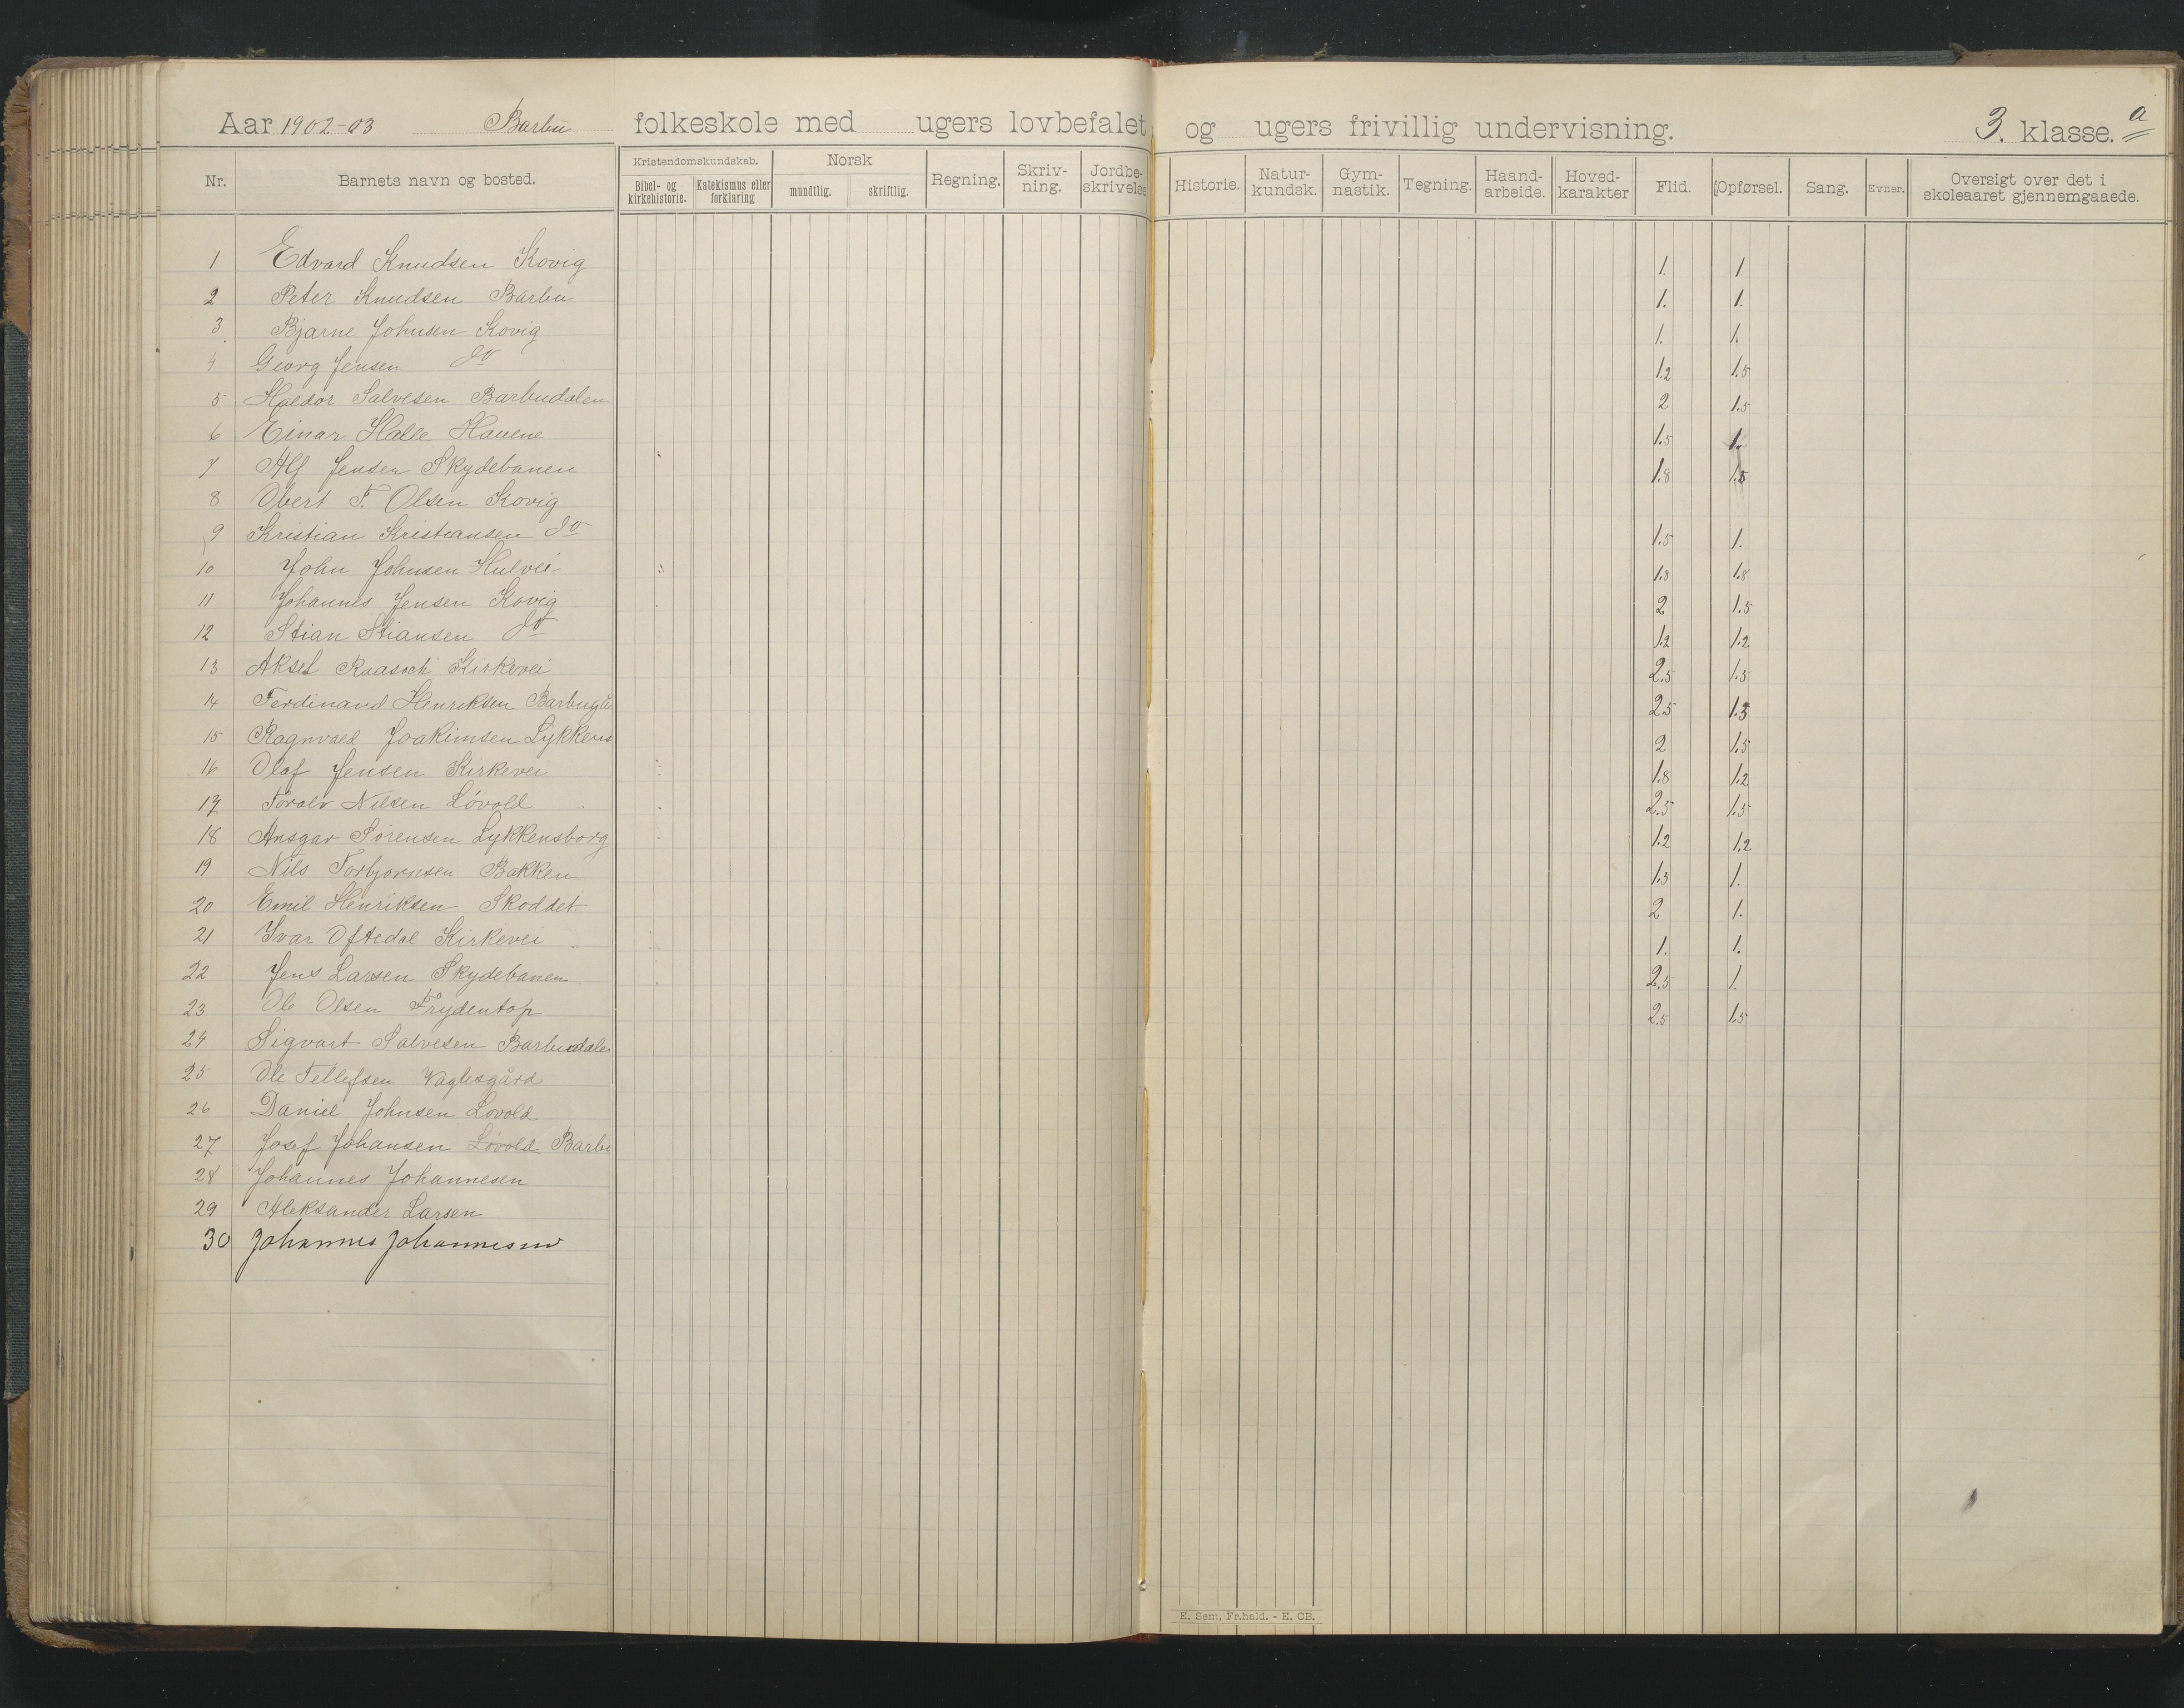 Aar 1902-03 Barbu folkeskole med ugers lovbefalet og ugers frivillig undervisning. 3. klasse. a
Nr. Barnets navn og bosted. Kristendomskundskab. Bibel- og kirkehistorie. Katekismus eller forklaring Norsk mundtlig. skriftlig. Regning. Skriv-ning. Jordbe-skrivelse Historie. Natur-kundsk. Gym-nastik. Tegning. Haand-arbeide. Hoved-karakter Flid. Opførsel. Sang. Evner. Oversigt over det i skoleaaret gjennemgaaede.
1 Edvard Knudsen Kovig 1. 1
2 Peter Knudsen Barbu 1. 1.
3 Bjarne Johnsen Kovig 1. 1.
4 Georg Jensen do 1.2 1.5
5 Haldor Salvesen Barbudalen 2 1.5
6 Einar Halle Hauene 1.5 1.
7 Alf Jensen Skydebanen 1.8 1.5
8 Obert T. Olsen Kovig
9 Kristian Kristiansen do 1.5 1.
10 John Johnsen Hulvei 1.8 1.8
11 Johannes Jensen Kovig 2 1.5
12 Stian Stiansen do 1.2 1.2
13 Aksel Raasock Kirkevei 2.5 1.5
14 Ferdinand Henriksen Barbugå 2.5 1.5
15 Ragnvald Joakimsen Lykkens 2 1.5
16 Olaf Jensen Kirkevei 1.8 1.2
17 Toralv Nilsen Løvold 2.5 1.5
18 Ansgar Sørensen Lykkensborg 1.2 1.2
19 Nils Torbjørnsen Bakken 1.5 1.
20 Emil Henriksen Skoddet 2 1.
21 Ivar Oftedal Kirkevei 1. 1.
22 Jens Larsen Skydebanen 2.5 1.
23 Ole Olsen Frydentop 2.5 1.5
24 Sigvart Salvesen Barbudale
25 Ole Tellefsen Vaglesgård
26 Daniel Johnsen Løvold
27 Josef Johansen Løvold Barbu
28 Johannes Johannesen
29 Aleksander Larsen
30 Johannes Johannesen
E. Sem, Fr.hald. - E. CB.